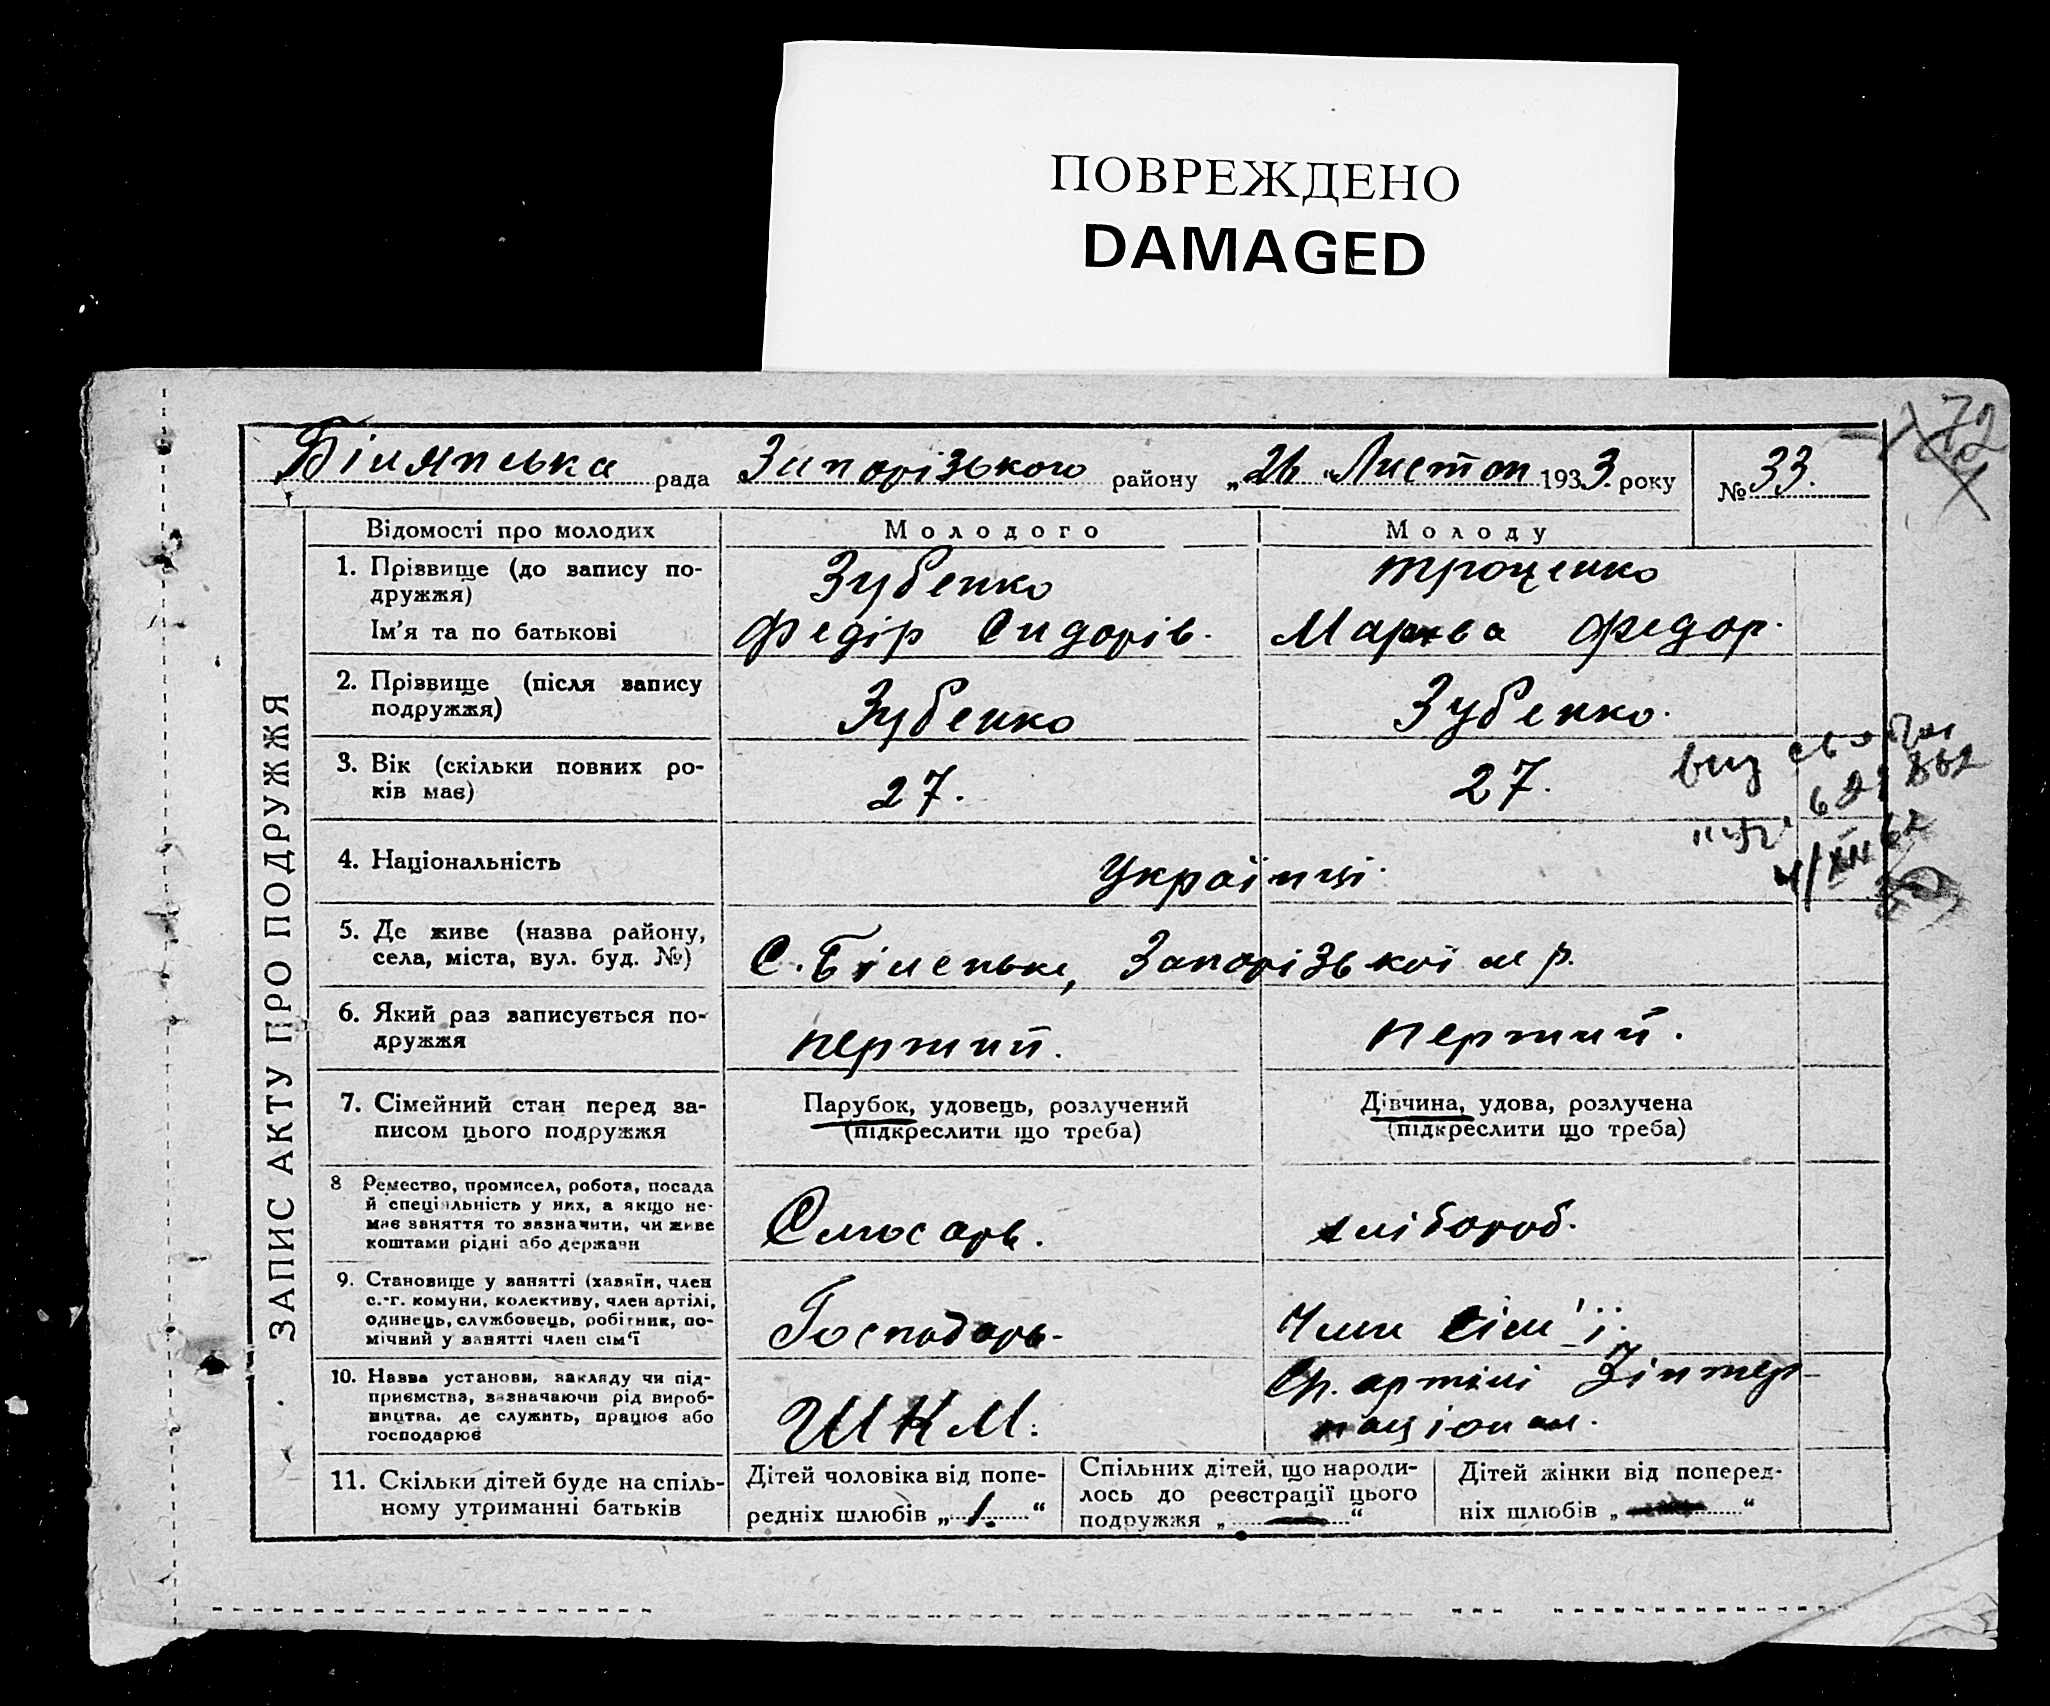 ПОВРЕЖДЕНО
DAMAGED
172
Білянська рада Запорізького району „26“ Листоп 1933 року № 33.
ЗАПИС АКТУ ПРО ПОДРУЖЖЯ
Відомості про молодих Молодого Молоду
1. Прізвище (до запису по-
дружжя) Зубенко Троценко
Ім'я та по батькові Федір Сидорів. Марква Федор.
2. Прізвище (після запису
подружжя) Зубенко Зубенко.
3. Вік (скільки повних ро-
ків має) 27. 27.
4. Національність Українці.
5. Де живе (назва району,
села, міста, вул. буд. №) С. Біленьке, Запорізької м р.
6. Який раз записується по-
дружжя перший. перший.
7. Сімейний стан перед за-
писом цього подружжя
Парубок, удовець, розлучений
(підкреслити що треба)
Дівчина, удова, розлучена
(підкреслити що треба)
8 Ремество, промисел, робота, посада
й спеціяльність у них, а якщо не-
має заняття то зазначити, чи живе
коштами рідні або держави
Слюсарь. хлібороб.
9. Становище у занятті (хазяїн, член
с.-г. комуни, колективу, член артілі,
одинець, службовець, робітник, по-
мічний у занятті член сім'ї
Господарь. Член сім'ї.
10. Назва установи, закладу чи під-
приємства, зазначаючи рід вироб-
ництва, де служить, працює або
господарює
ШКМ.
Ср. артілі Інтер-
націонал.
11. Скільки дітей буде на спіль-
ному утриманні батьків
Дітей чоловіка від попе-
редніх шлюбів „1.“
Спільних дітей, що народи-
лось до реєстрації цього
подружжя „—“
Дітей жінки від поперед-
ніх шлюбів „—“